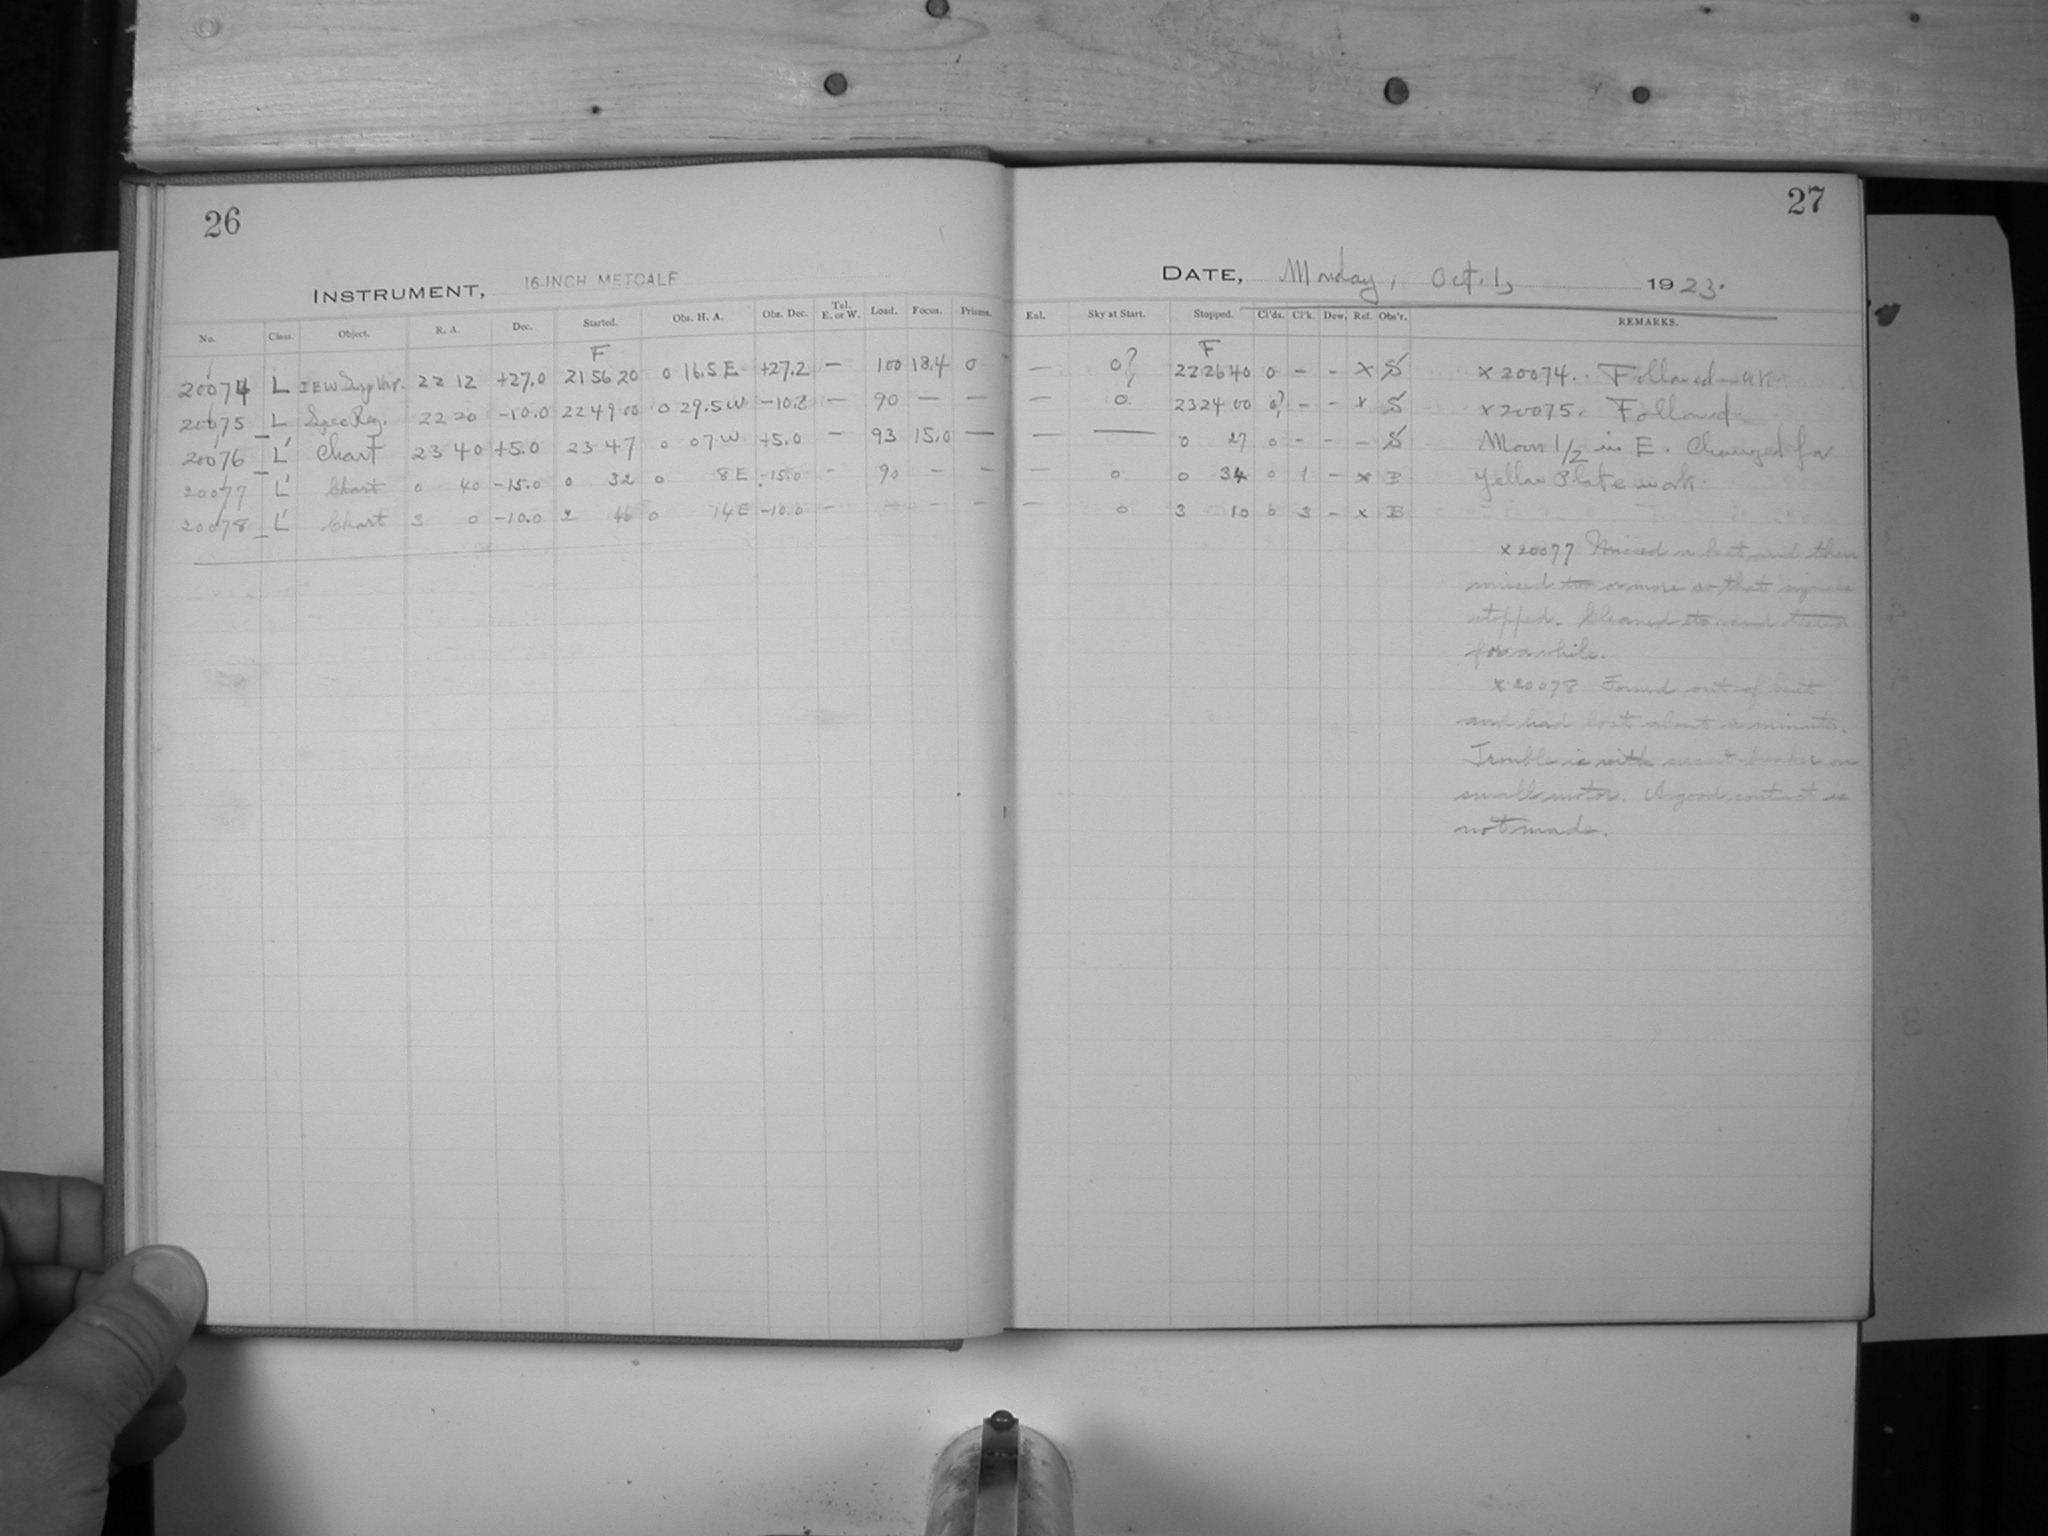 26
27
INSTRUMENT, 16-INCH METCALF
DATE, Monday, Oct. 1, 1923.
No. Class. Object. R. A. Dec. Started. Obs. H. A. Obs. Dec. Tel. E. or W. Load. Focus. Prisms. Exl. Sky at Start. Stopped. Cl'ds. Cl'k. Dew. Ref. Obs'r. REMARKS.
F F
20074 L 22 12 +27.0 21 56 20 0 16.5 E +27.2 — 100 18.4 0 — 0? 22 26 40 0 - - x S x 20074. Followed
20075 L Spec Reg. 22 20 -10.0 22 49 00 0 29.5 W -10.8 — 90 — — — 0 23 24 00 0? - - x S x 20075. Followed
20076 L' Chart 23 40 +5.0 23 47 0 07 W +5.0 — 93 15.0 — — — 0 27 0 - - - S Moon 1/2 in E. Changed for
20077 L' Chart 0 40 -15.0 0 32 0 8 E -15.0 - 90 - - — 0 0 34 0 1 - x B Yellow Plate work
20078 L' Chart 3 0 -10.0 2 46 0 14 E -10.0 - - - - 0 3 10 0 3 - x B
x 20077 Missed a beat and then
missed two or more so that signals
stopped. Cleaned and tested
for a while.
x 20078 Found out of beat
and had lost about a minute.
Trouble is with breaker on
small motor. A good contact is
not made.